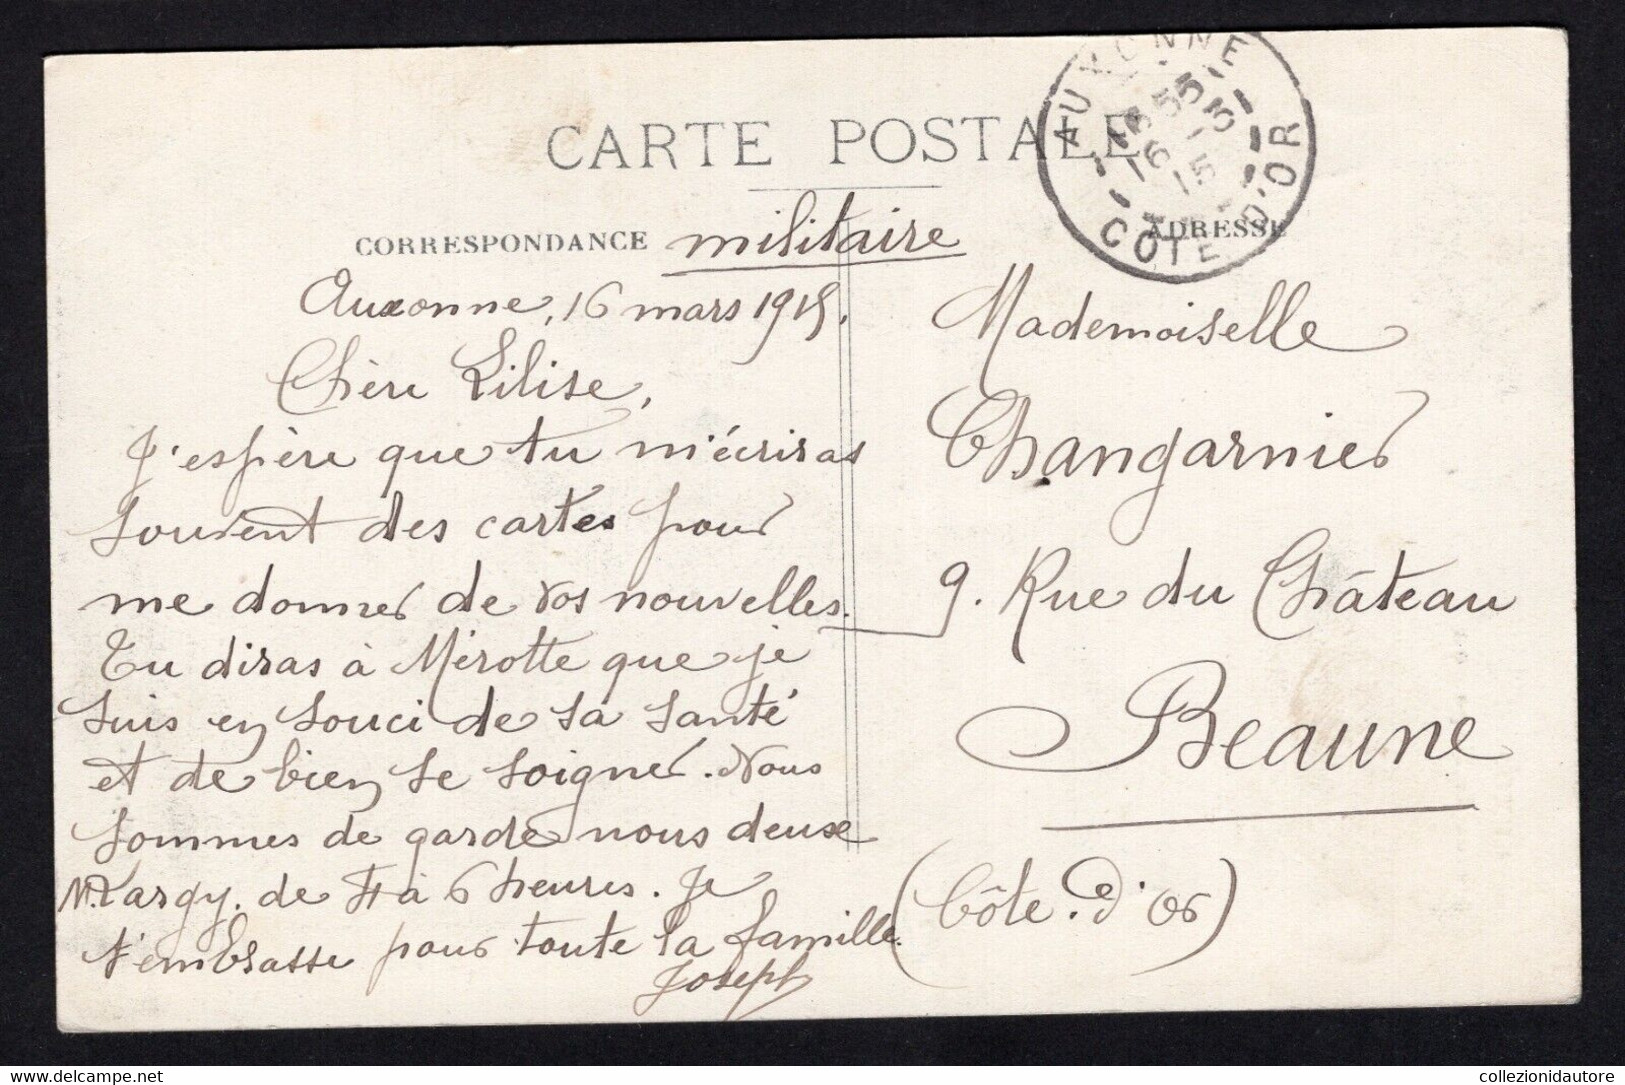 CARTE POSTALE
CORRESPONDANCE militaire
ADRESSE
AUXONNE
16 -3
15
COTE D'OR
Auxonne, 16 mars 1915.
Chère Lilise,
J'espère que tu m'écriras
souvent des cartes pour
me donner de vos nouvelles.
Tu diras à Mérotte que je
suis en souci de sa santé
et de bien se soigner. Nous
sommes de garde nous deux
M. Largy. de 4 à 6 heures. Je
t'embrasse pour toute la famille.
Joseph
Mademoiselle
Changarnier
9. Rue du Château
Beaune
(Côte. d'Or)
Id. 2185
collezionidautore